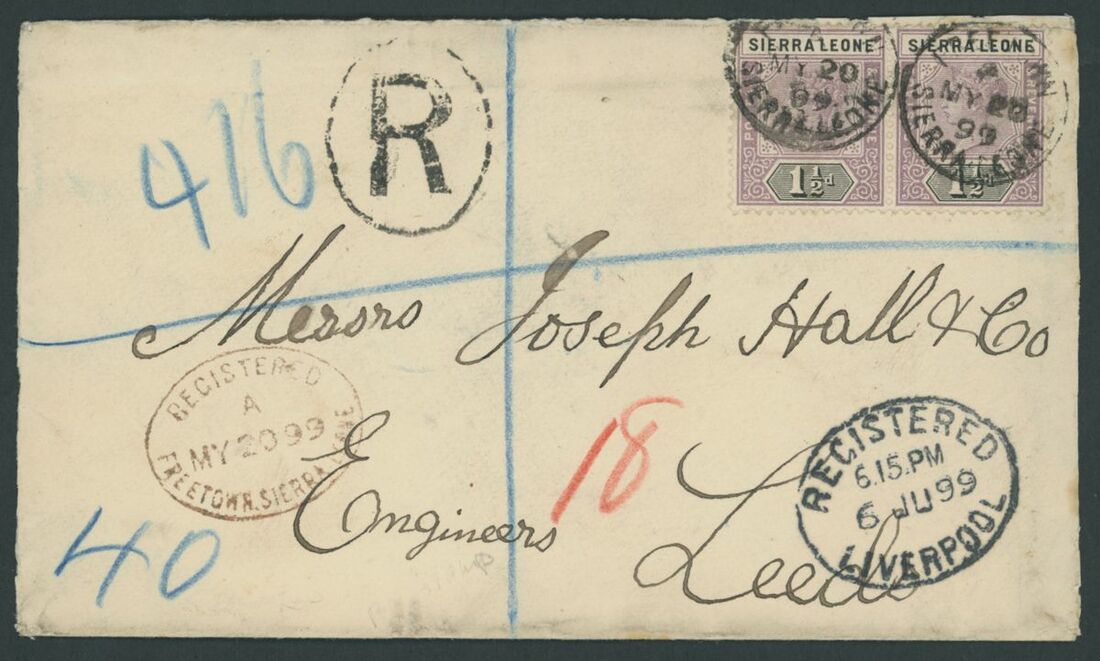 416
R
SIERRA LEONE
1½d
FREETOWN
A
MY 20
99
SIERRA LEONE
SIERRA LEONE
1½d
FREETOWN
A
MY 20
99
SIERRA LEONE
Messrs Joseph Hall & Co
REGISTERED
A
MY 20 99
FREETOWN. SIERRA LEONE
Engineers
18
Leeds
REGISTERED
6.15.PM
6 JU 99
LIVERPOOL
40